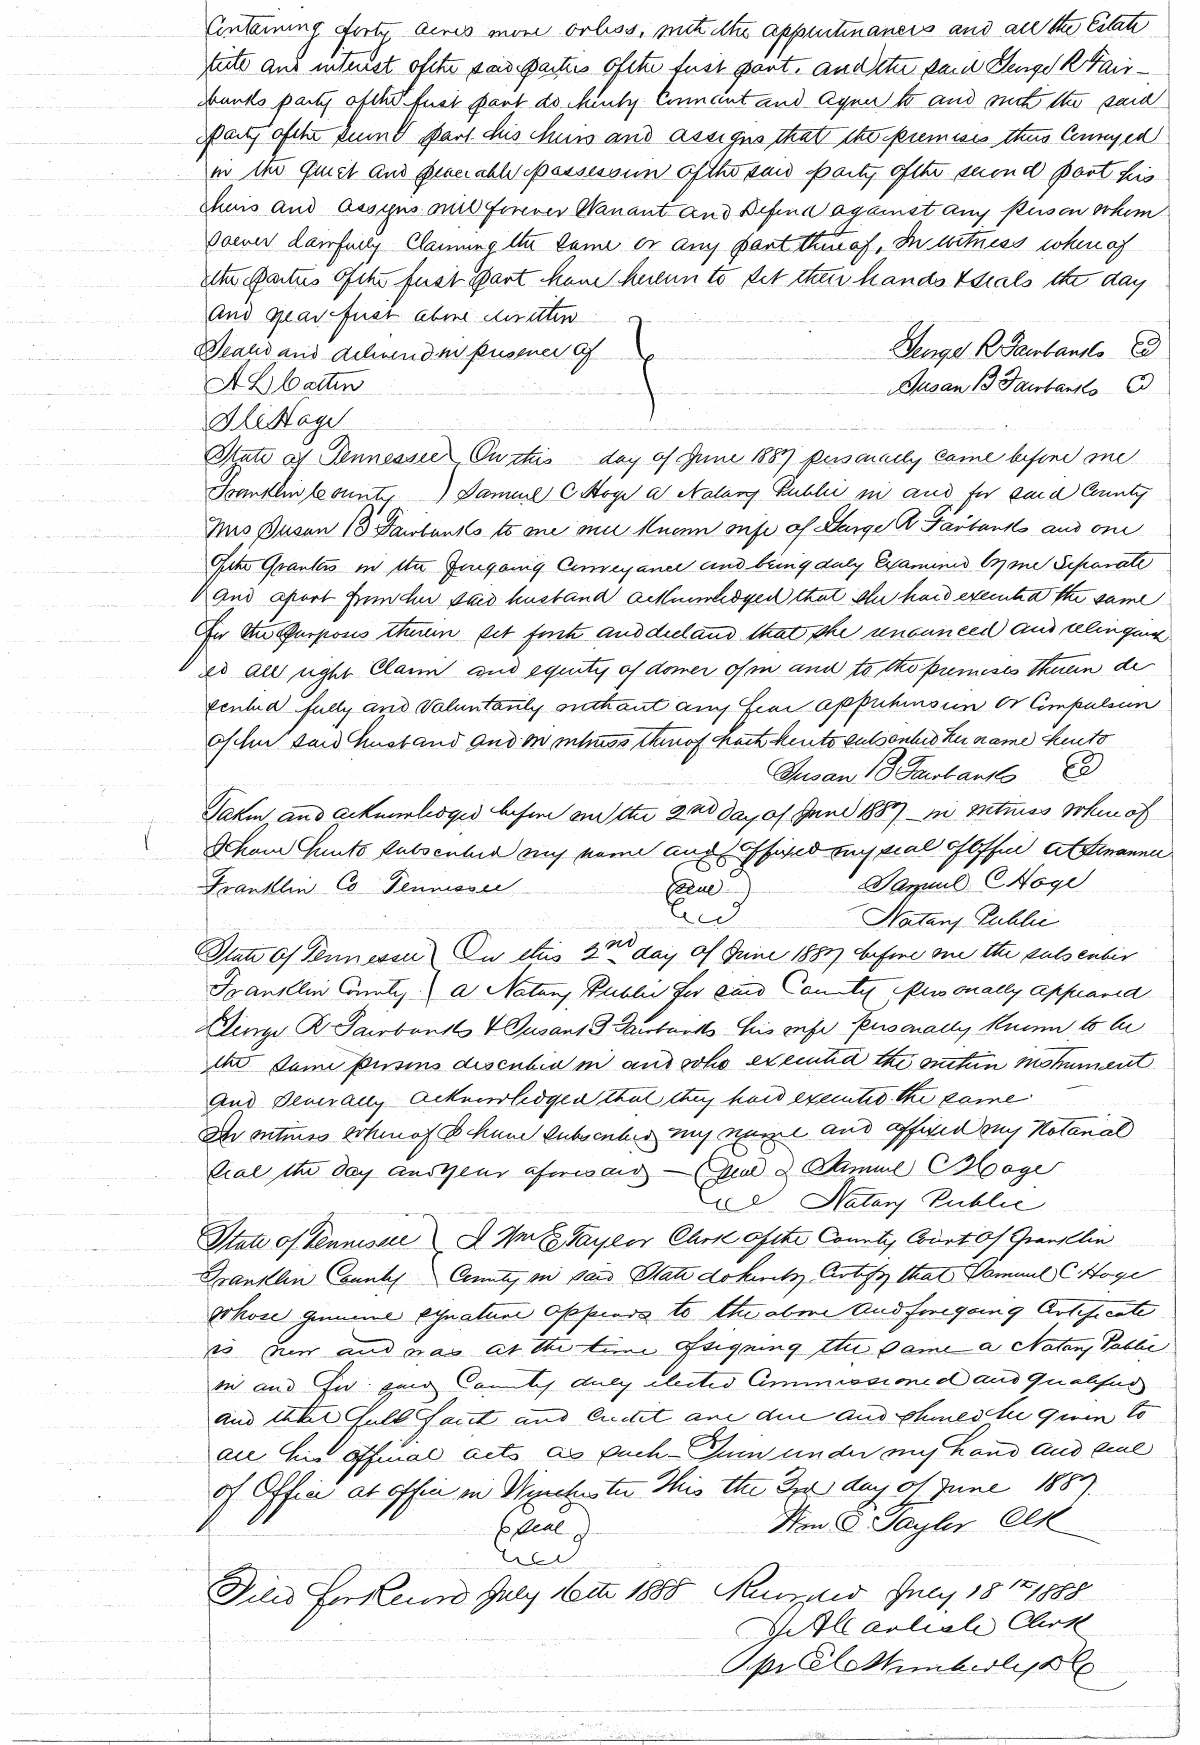 Containing forty acres more or less, with the appurtinances and all the Estate
title and interest of the said parties of the first part. and the said George R Fair-
banks party of the first part do hereby Covenant and agree to and with the said
party of the second part his heirs and assigns that the premises thus Conveyed
in the quiet and peaceable possession of the said party of the second part his
heirs and assigns will forever Warrant and Defend against any person whom
soever lawfully Claiming the same or any part thereof, In witness where of
the parties of the first part have hereun to set their hands & seals the day
and year first above written
Sealed and delivered in presence of George R Fairbanks
A L Susan B Fairbanks
Hoge
State of Tennessee On this day of June 1887 personally came before me
Franklin County ) Samuel C Hoge a Notary Public in and for said County
Mrs Susan B Fairbanks to me well known wife of George R Fairbanks and one
of the Grantors in the foregoing Conveyance and being duly Examined by me Separate
and apart from her said husband acknowledged that she had executed the same
for the purposes therein set forth and declared that she renounced and relinquish
ed all right Claim and equity of dower of in and to the premises therein de
scribed fully and voluntarily without any fear apprehension or Compulsion
of her said husband and in witness thereof hath hereto subscribed her name hereto
Susan B Fairbanks
Taken and acknowledged before me the 2nd day of June 1887 - in witness where of
I have hereto subscribed my name and affixed my seal of Office at Sewannee
Franklin Co Tennessee (Seal) Samuel C Hoge
Notary Public
State of Tennessee ) On this 2nd day of June 1887 before me the subscriber
Franklin County ) a Notary Public for said County personally appeared
George R Fairbanks & Susan B Fairbanks his wife personally known to be
the same persons described in and who executed the within instrument
and severally acknowledged that they had executed the same
In witness whereof I have subscribed my name and affixed my Notarial
seal the day and year aforesaid — (Seal) Samuel C Hoge
Notary Public
State of Tennessee ) I Wm E Taylor Clerk of the County Court of Franklin
Franklin County ) County in said State do hereby Certify that Samuel C Hoge
whose genuine signature appears to the above and foregoing Certificate
is now and was at the time of signing the same a Notary Public
in and for said County duly elected Commissioned and qualified
and that full faith and credit are due and should be given to
all his official acts as such - Given under my hand and seal
of Office at office in Winchester this the 3rd day of June 1887
(Seal) Wm E. Taylor Clk
Filed for Record July 16th 1888 Recorded July 18th 1888
Carlisle Clerk
pr Wimberly DC